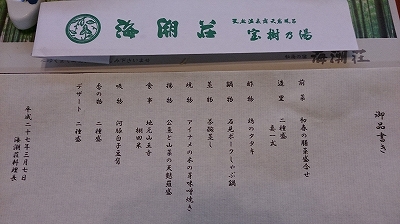 海潮荘
宝樹乃湯
海潮荘
御品書き
前菜 初春の膳菜盛合せ
造里 二種盛
喜一式
酢物 鶏のタタキ
鍋物 石見ポークしゃぶ鍋
蒸物 茶碗蒸し
焼物 アイナメの木の芽味噌焼き
揚物 公魚と山菜の天麩羅盛
食事 地元山王寺
棚田米
吸物 河豚白子豆腐
香の物 二種盛
デザート 二種盛
平成二十七年三月七日
海潮荘料理長